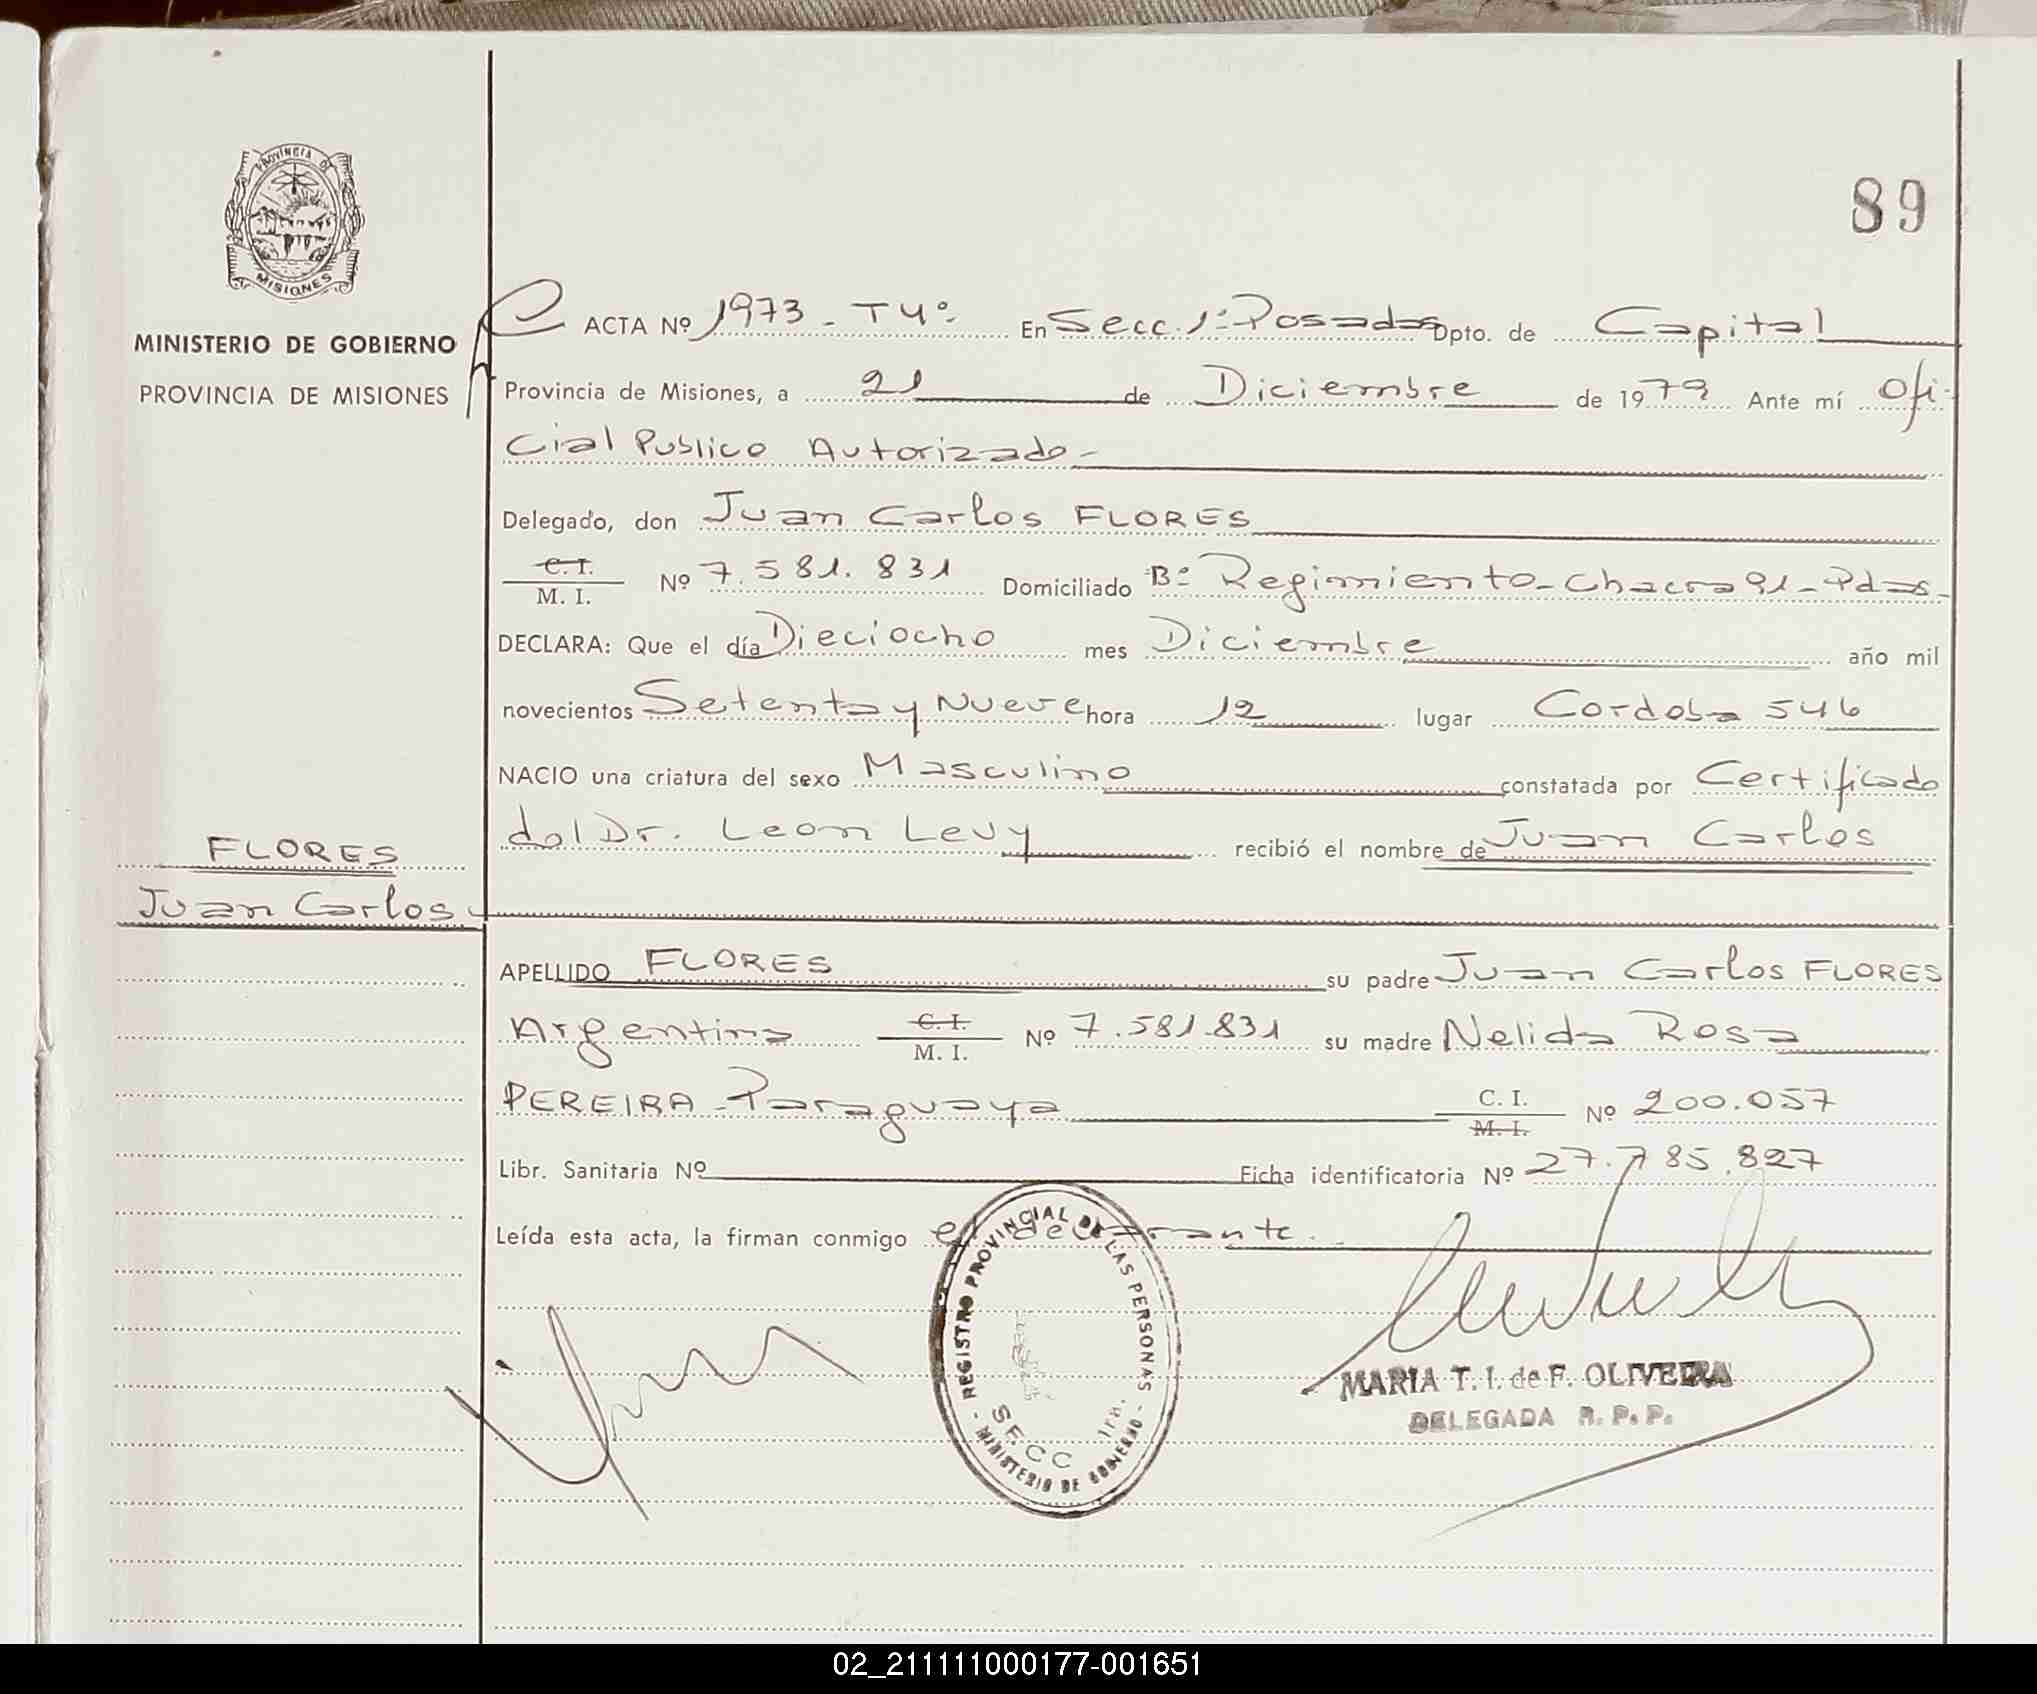 89
PROVINCIA DE
MISIONES
MINISTERIO DE GOBIERNO
PROVINCIA DE MISIONES
ACTA Nº 1973 - T4º En Secc. 1ª Posadas Dpto. de Capital
Provincia de Misiones, a 21 de Diciembre de 1979 Ante mí Ofi-
cial Publico Autorizado-
Delegado, don Juan Carlos FLORES
C. I.
M. I. Nº 7.581.831 Domiciliado Bº Regimiento-Chacra 91-Pdas-
DECLARA: Que el día Dieciocho mes Diciembre año mil
novecientos Setenta y Nueve hora 12 lugar Cordoba 546
NACIO una criatura del sexo Masculino constatada por Certificado
del Dr. Leon Levy recibió el nombre de Juan Carlos
FLORES
Juan Carlos
APELLIDO FLORES su padre Juan Carlos FLORES
Argentino C. I. M. I. Nº 7.581.831 su madre Nelida Rosa
PEREIRA-Paraguaya C. I. M. I. Nº 200.057
Libr. Sanitaria Nº Ficha identificatoria Nº 27.785.827
Leída esta acta, la firman conmigo el declarante.
REGISTRO PROVINCIAL DE LAS PERSONAS
SECC 1ra.
- MINISTERIO DE GOBIERNO -
MARIA T. I. de F. OLIVEIRA
DELEGADA R. P. P.
02_211111000177-001651